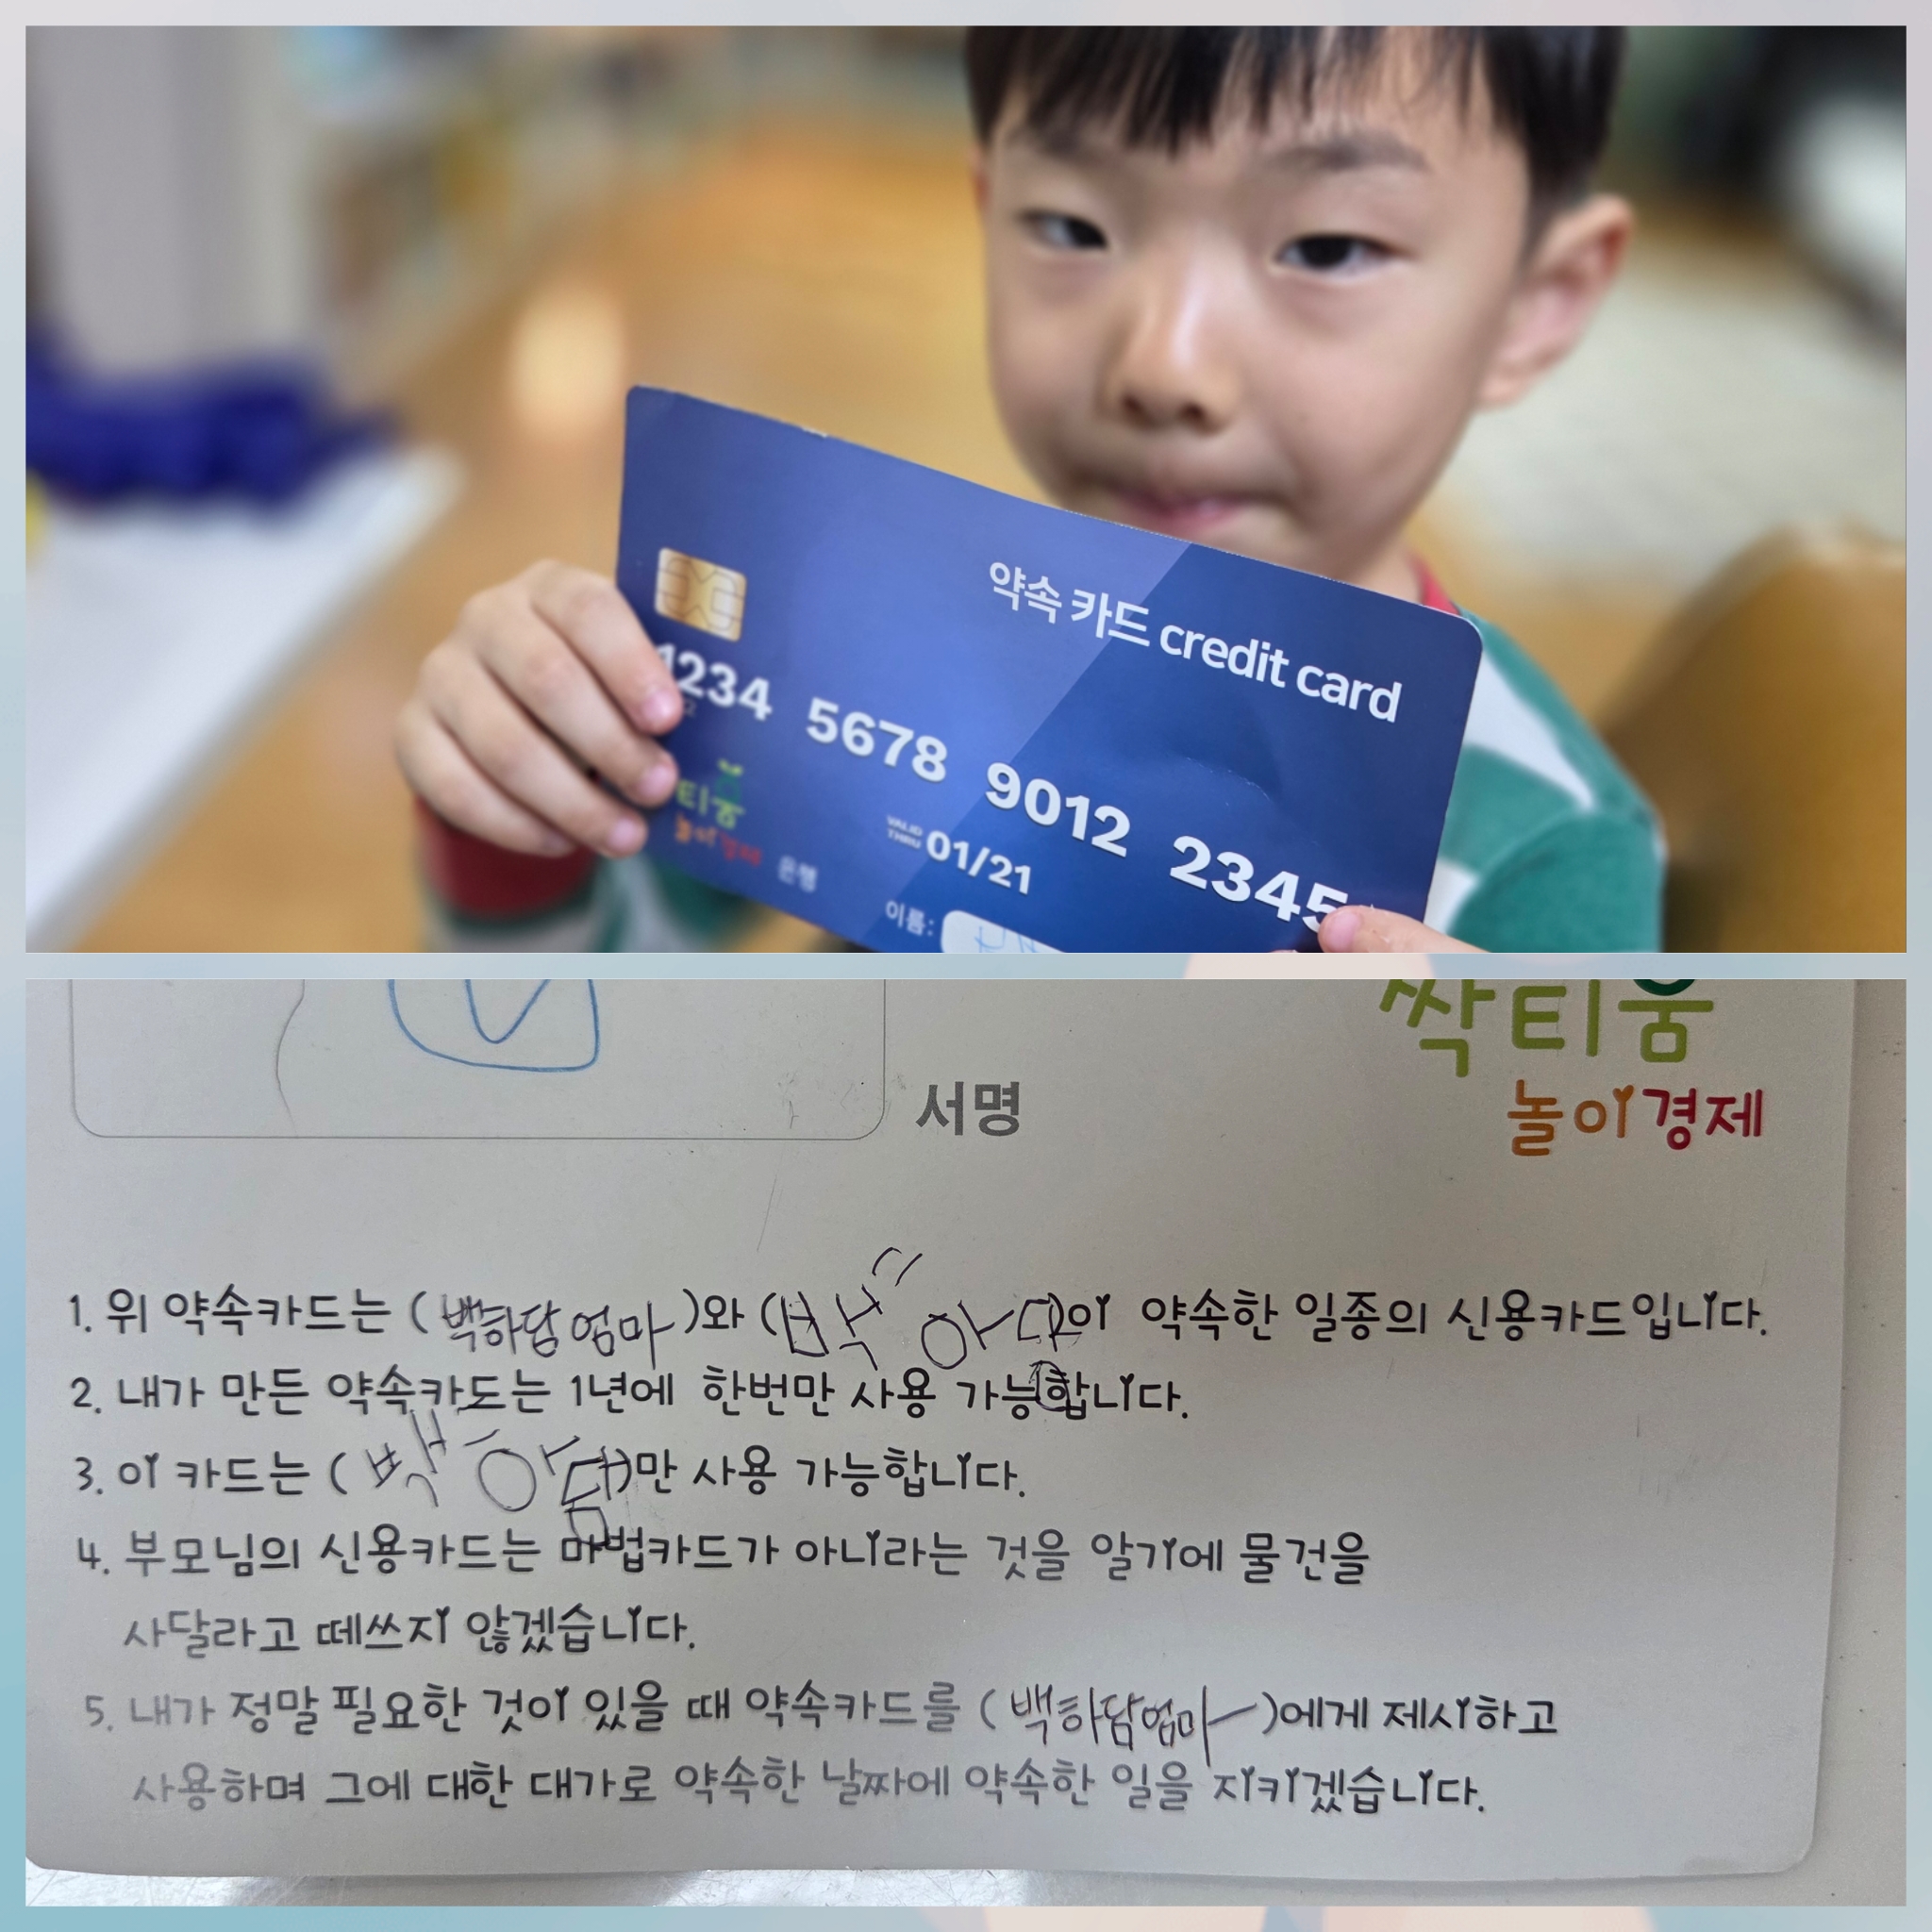 약속 카드 credit card
1234 5678 9012 2345
VALID THRU 01/21
티움
놀이경제 은행
이름:
싹티움
놀이경제
서명
1. 위 약속카드는 (백하담엄마)와 ()이 약속한 일종의 신용카드입니다.
2. 내가 만든 약속카도는 1년에 한번만 사용 가능합니다.
3. 이 카드는 ()만 사용 가능합니다.
4. 부모님의 신용카드는 마법카드가 아니라는 것을 알기에 물건을
사달라고 떼쓰지 않겠습니다.
5. 내가 정말 필요한 것이 있을 때 약속카드를 (백하담엄마)에게 제시하고
사용하며 그에 대한 대가로 약속한 날짜에 약속한 일을 지키겠습니다.